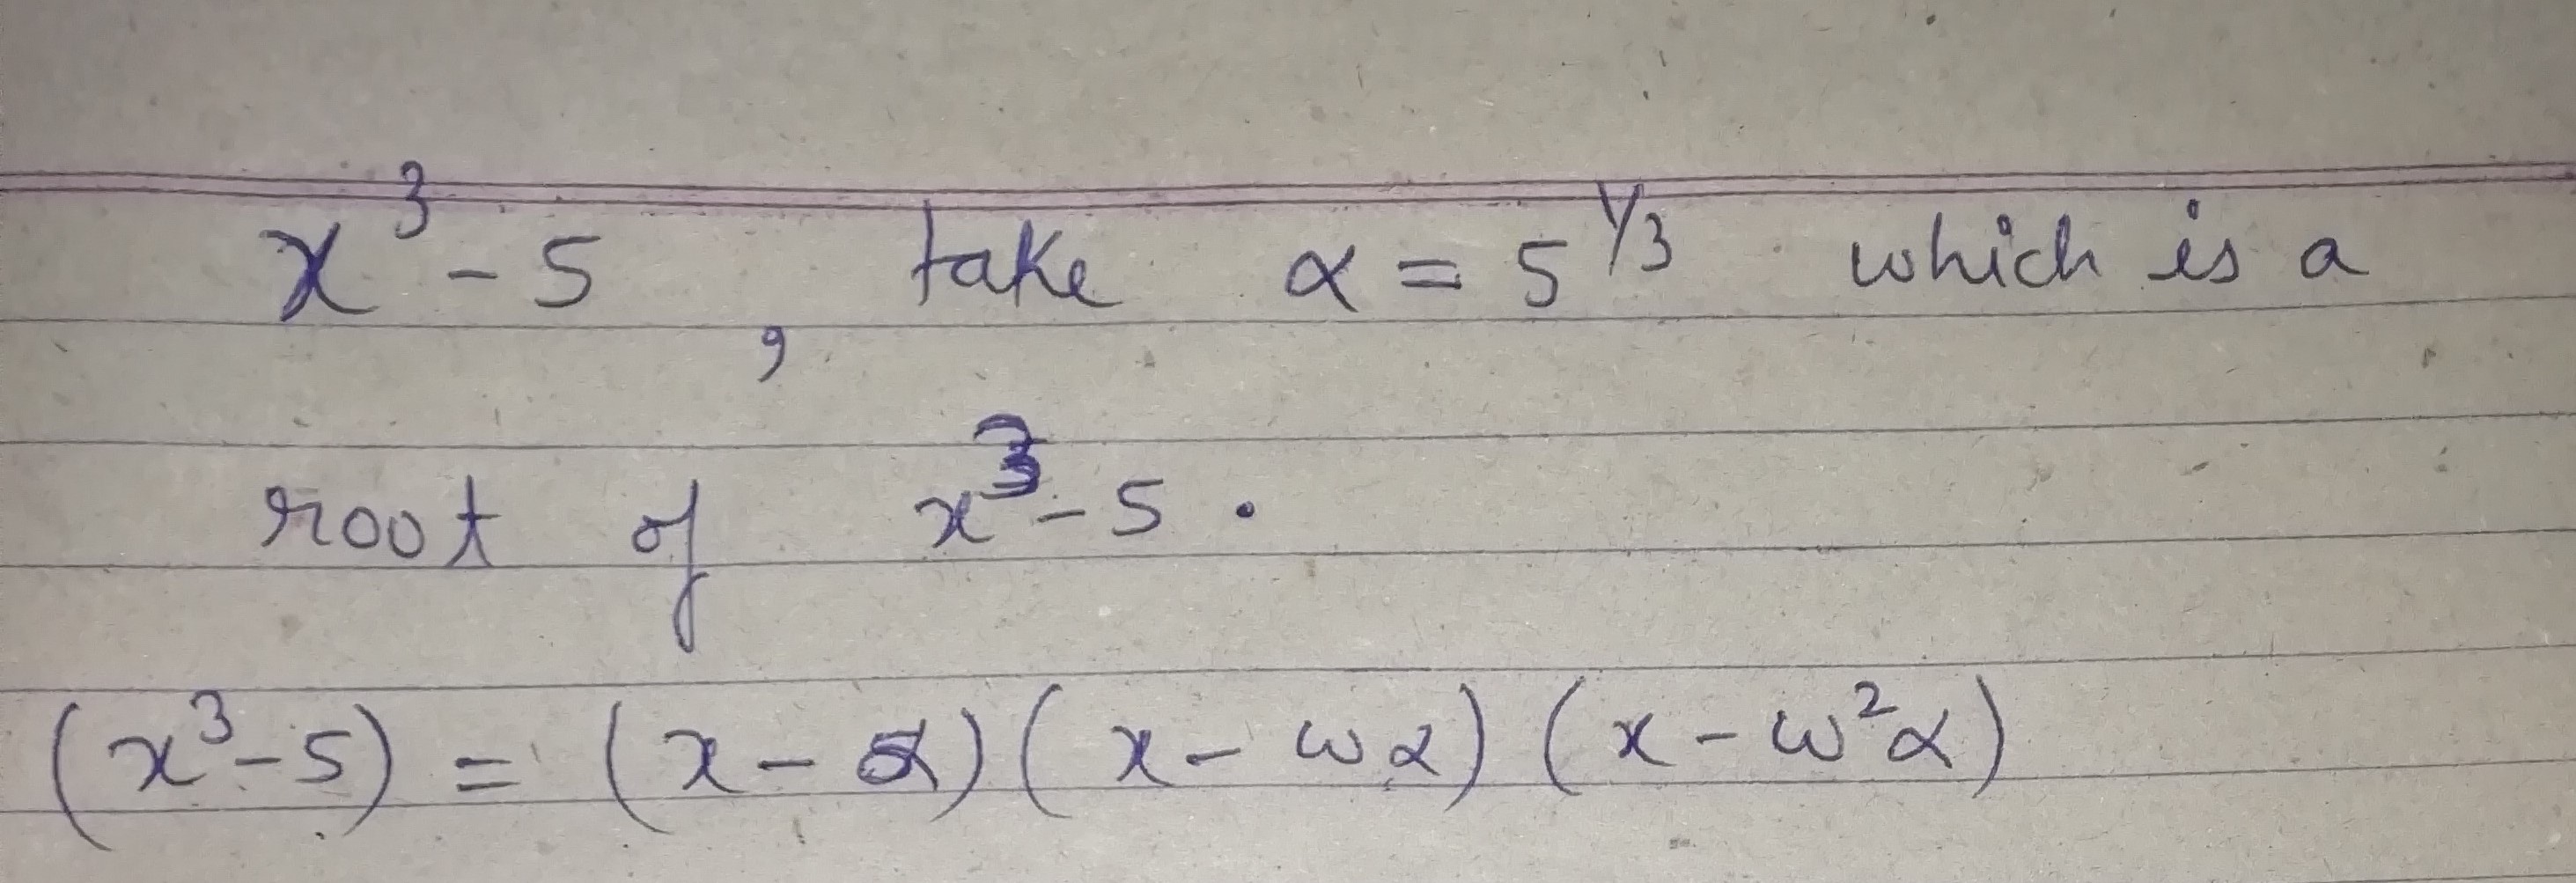 x³ - 5 , take α = 5^1/3 which is a
root of x³ - 5 .
(x³ - 5) = (x - α) (x - ωα) (x - ω²α)